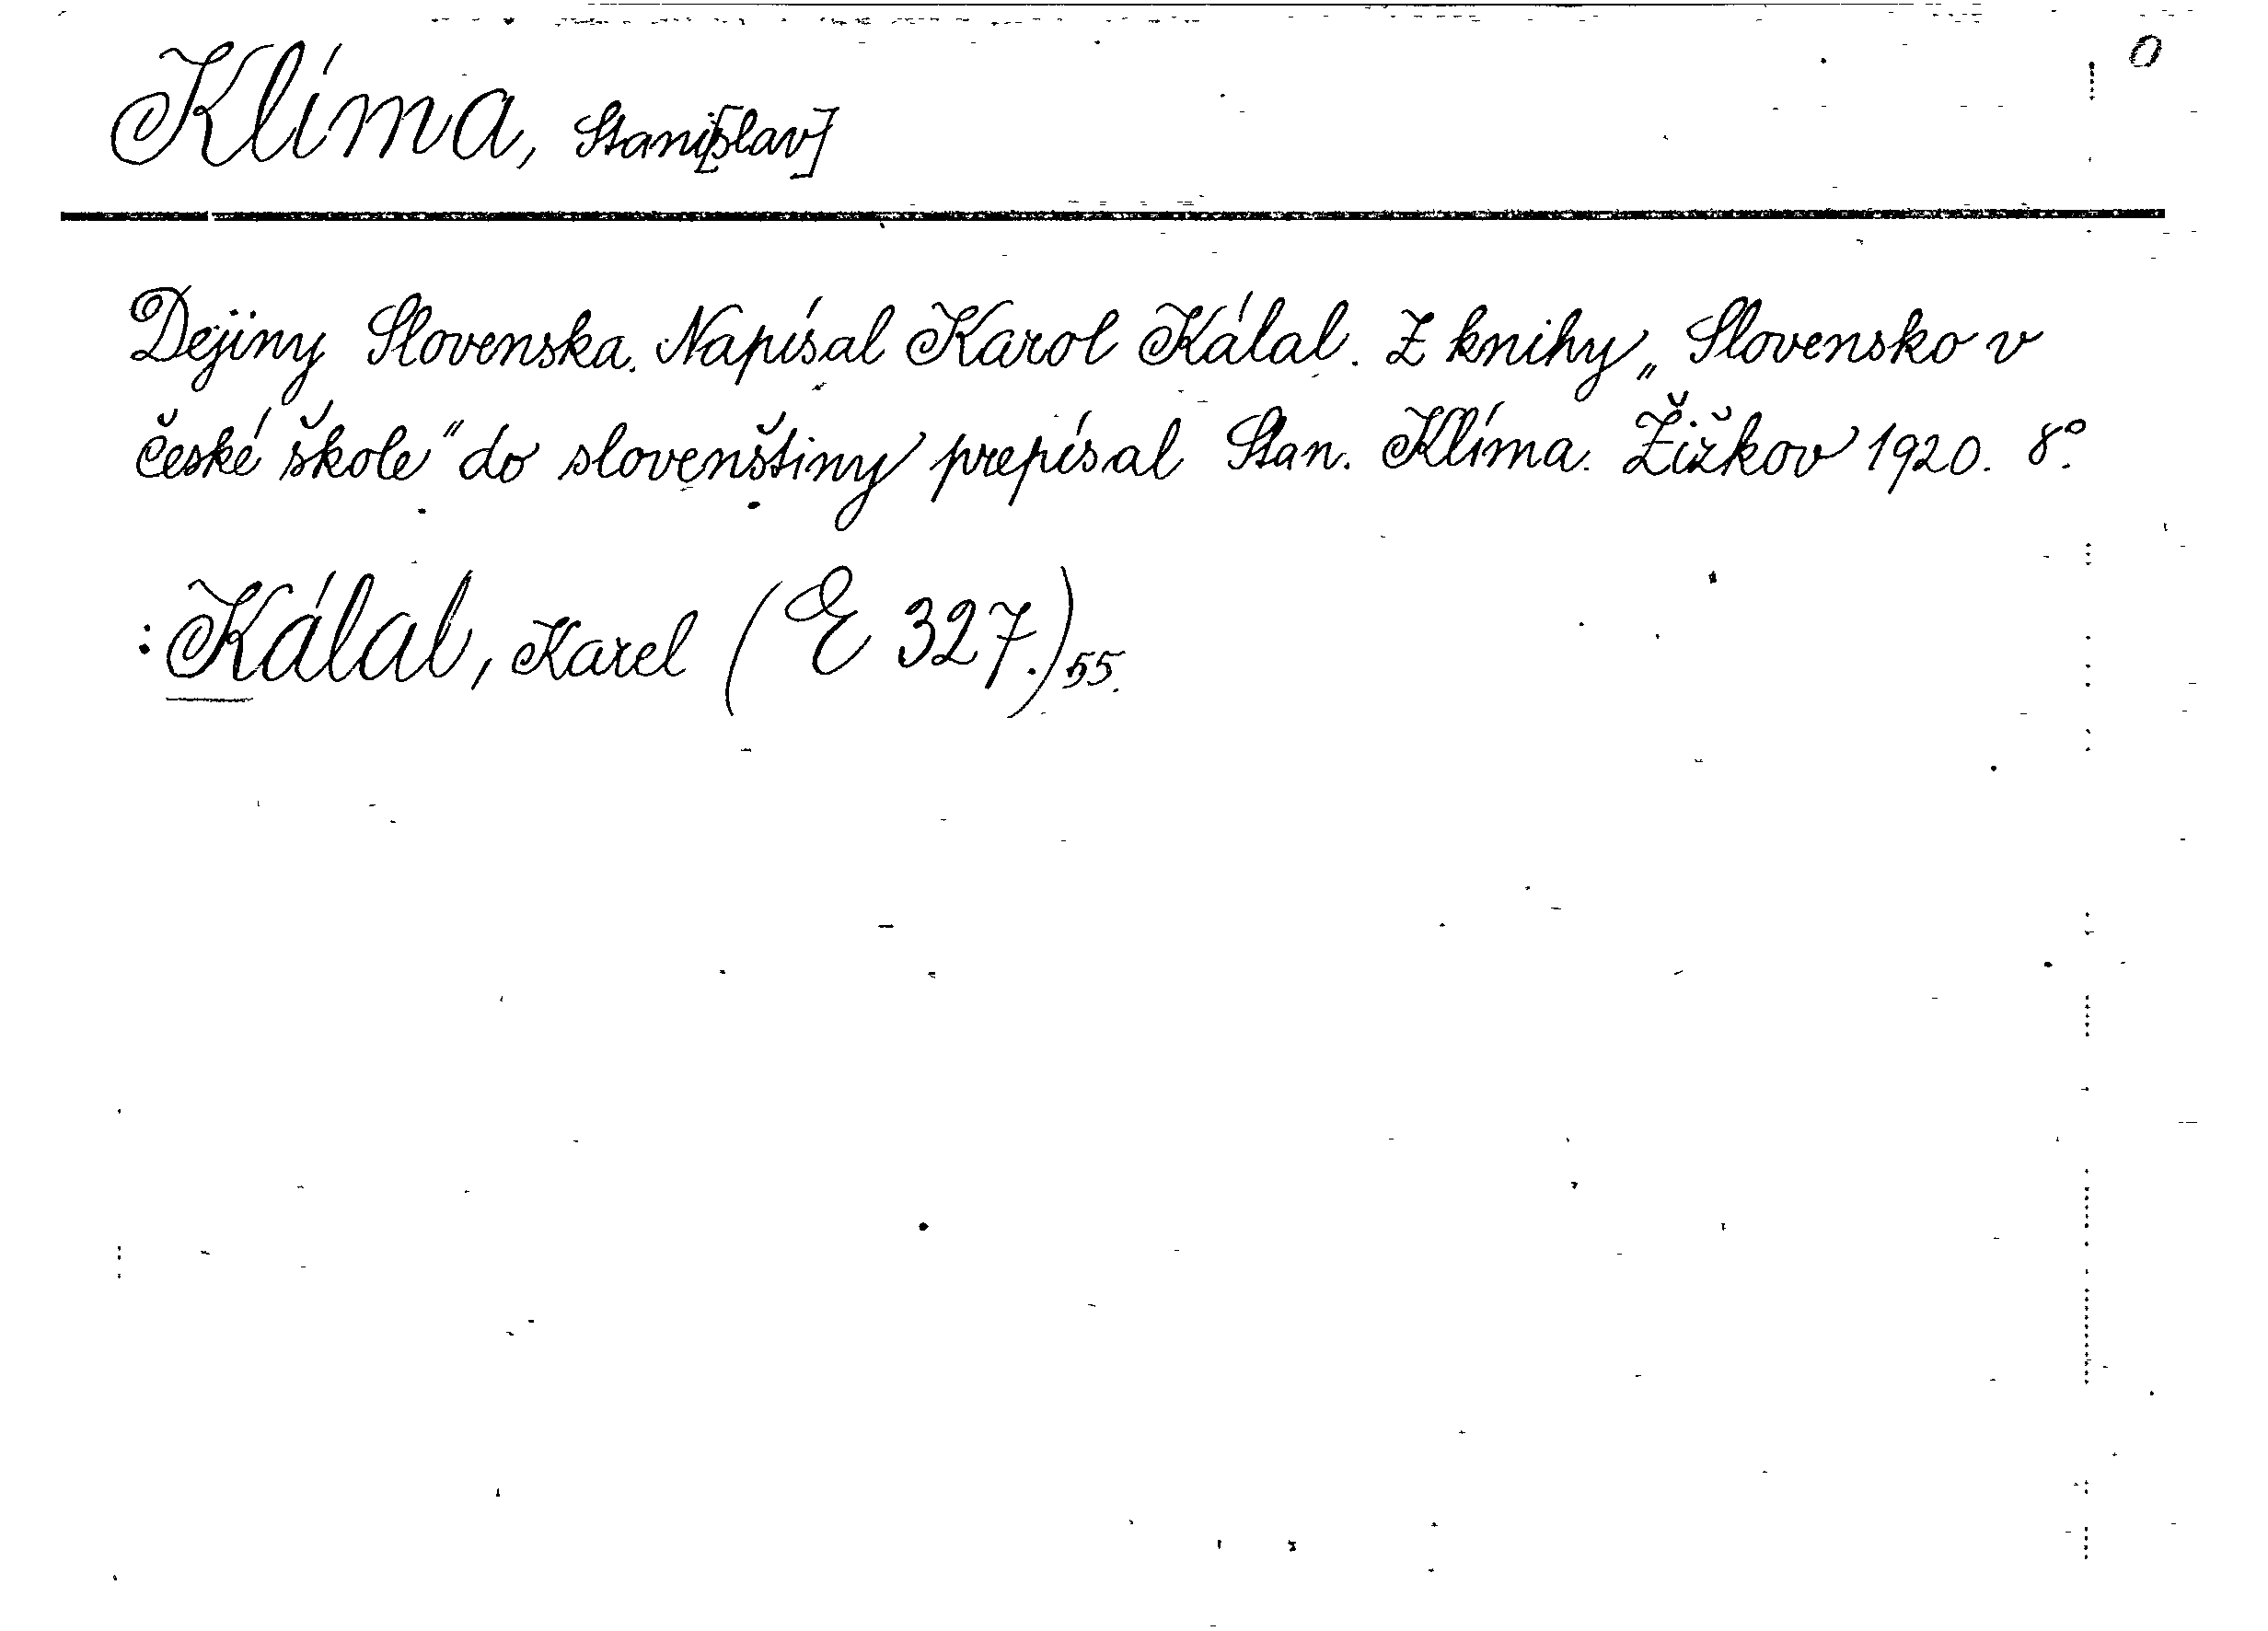 0
Klíma, Stani[slav]
Dejiny Slovenska. Napísal Karol Kálal. Z knihy „Slovensko v
české škole“ do slovenštiny prepísal Stan. Klíma. Žižkov 1920. 8°.
: Kálal, Karel (E 327.) 55.